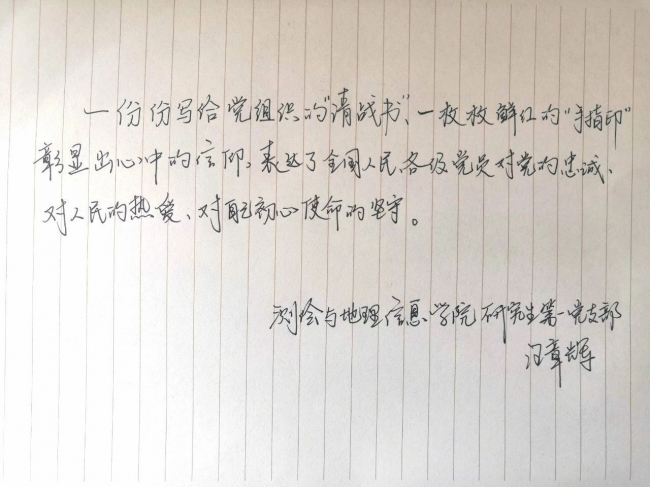 一份份写给党组织的"请战书"、一枚枚鲜红的"手指印"
彰显出心中的信仰，表达了全国人民各级党员对党的忠诚、
对人民的热爱、对自己初心使命的坚守。
测绘与地理信息学院研究生第一党支部
汪章辉